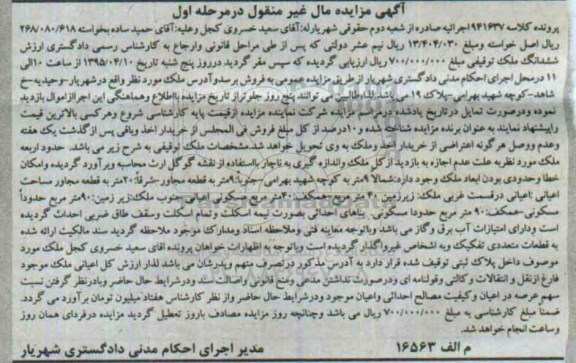 آگهی مزایده مال غیر منقول درمرحله اول
پرونده کلاسه ۹۴۱۶۳۷اجرائیه صادره از شعبه دوم حقوقی شهریار له: آقای سعید خسروی کجل وعلیه: آقای حمید ساده بخواسته ۲۶۸/۰۸۰/۶۱۸
ریال اصل خواسته ومبلغ ۱۳/۴۰۴/۰۳۰ ریال نیم عشر دولتی که پس از طی مراحل قانونی وارجاع به کارشناس رسمی دادگستری ارزش
ششدانگ ملک توقیفی مبلغ ۷۰۰/۰۰۰/۰۰۰ ریال ارزیابی گردیده که سپس مقر گردید درروز پنج شنبه تاریخ ۱۳۹۵/۰۴/۱۰ از ساعت ۱۰الی
۱۱ درمحل اجرای احکام مدنی دادگستری شهریار از طریق مزایده عمومی به فروش برسد وآدرس ملک مورد نظر واقع درشهریار-وحیدیه-خ
شاهد-کوچه شهید بهرامی-پلاک ۱۹ می باشد.لذا طالبین می توانند پنج روز جلوتر از تاریخ مزایده بااطلاع وهماهنگی این اجرا ازاموال بازدید
نموده ودرصورت تمایل در تاریخ یادشده درمزایده شرکت نماینده مزایده ازقیمت پایه کارشناسی شروع وهرکسی بالاترین قیمت
راپیشنهاد نمایند به عنوان برنده مزایده شناخته شده و ۱۰درصد از کل مبلغ فروش فی المجلس از خریدار اخذ وباقی پس از گذشت یک هفته
وعدم ووصل هرگونه اعتراضی از خریدار اخذ وملک به وی تحویل خواهد شد.مشخصات ملک توقیفی به شرح زیر می باشد. حدود اربعه
ملک مورد نظر به علت عدم اجازه به بازدید از کل ملک واندازه گیری به ناچار بااستفاده از نقشه گوگل ارث محاسبه وبرآورد گردیده وامکان
خطا وحدودی بودن ابعاد ملک وجود دارد:شمالا ۹متر به کوچه شهید بهرامی-جنوبا:۹متر به قطعه مجاور-شرقا:۲۰متر به قطعه مجاور مساحت
اعیانی :اعیانی درقسمت غربی ملک: زیرزمین ۳۰ متر مربع حدودا مسکونی اعیانی جنوب ملک:زیر زمین:۹۰متر مربع حدودا
مسکونی-همکف:۹۰ متر مربع حدودا مسکونی. بناهای احداثی بصورت نیمه اسکلت وتمام اسکلت وسقف طاق ضربی احداث گردیده
است ودارای امتیازات آب برق وگاز می باشد وباتوجه معاینه فنی وملاحظه اسناد ومدارک موجود ملاحظه گردید سند مالکیت ارائه شده
به قطعات متعددی تفکیک وبه اشخاص غیرواگذار گردیده است وباتوجه به اظهارات خواهان پرونده اقای سعید خسروی کجل ملک مورد
موصوف داخل پلاک ثبتی توقیف شده قرار دارد به آدرس مذکور درتصرف متهم وپدرشان می باشد لذار ارزش کل اعیانی ملک موجود
فارغ ازنقل و انتقالات و کالتی وقولنامه ای ودرصورت نداشتن مدعی ومنع قانونی واصالت سند ودرشرایط حال حاضر وبادرنظر گرفتن نسبت
سهم عرصه در اعیان وکیفیت مصالح احداثی واعیان موجود ودرشرایط حال حاضر واز نظر کارشناس هفتاد میلیون تومان برآورد می گردد.
ضمنا مبلغ کارشناسی به مبلغ ۷۰۰/۰۰۰/۰۰۰ ریال می باشد وچنانچه روز مزایده مصادف باروز تعطیل گردید مزایده درفردای همان روز
وساعت انجام خواهد شد.
م الف ۱۶۵۶۳
مدیر اجرای احکام مدنی دادگستری شهریار